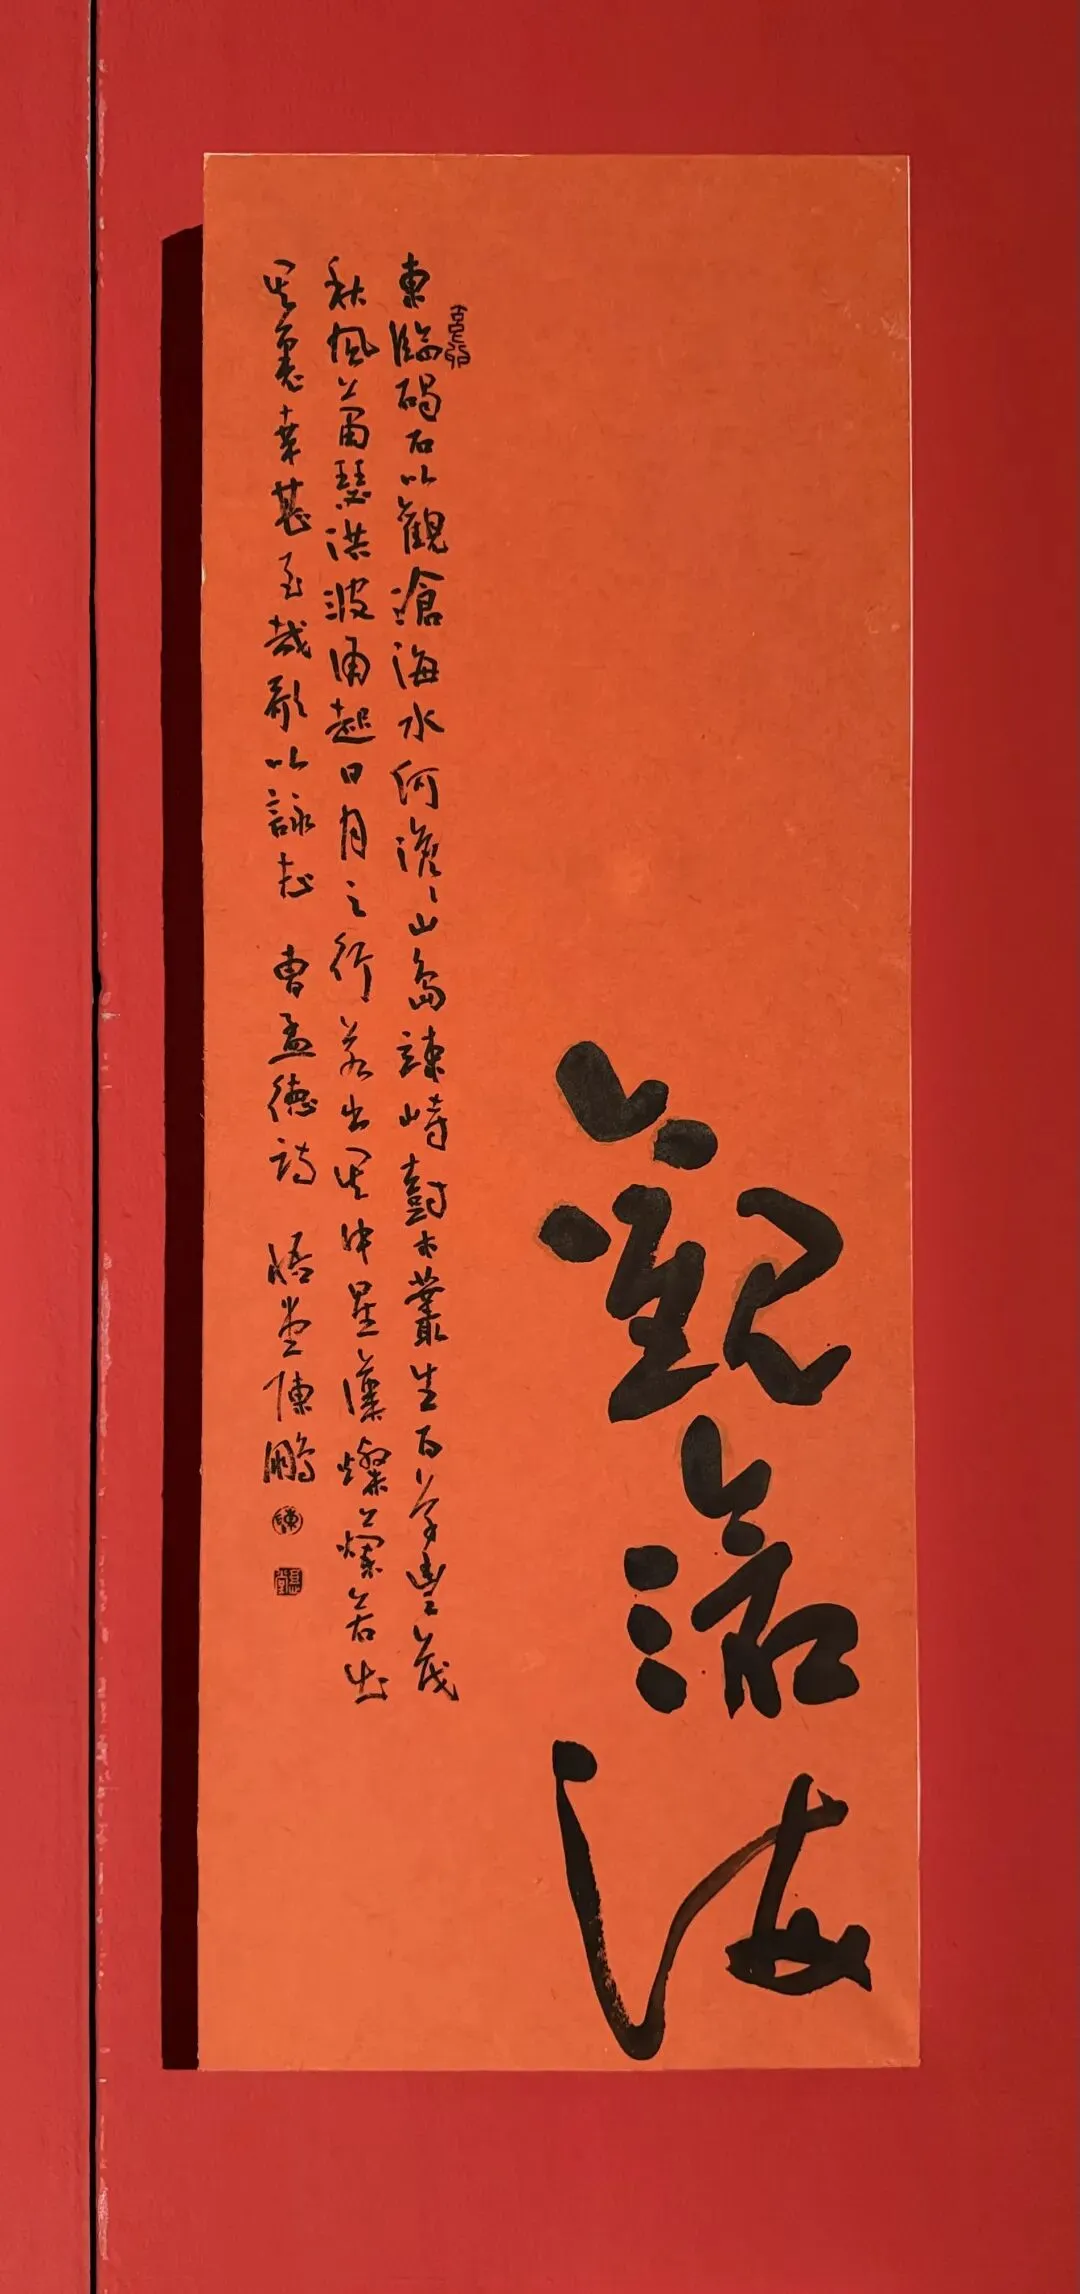 觀滄海
東臨碣石以觀滄海水何澹〻山島竦峙樹木叢生百草豐茂
秋風蕭瑟洪波涌起日月之行若出其中星漢燦爛若出
其裏幸甚至哉歌以詠志 曹孟德詩 悟堂陳鵬